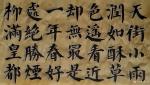 天街小雨
潤如酥草
色遙看近
却無最是
一年春好
處絕勝煙
柳滿皇都